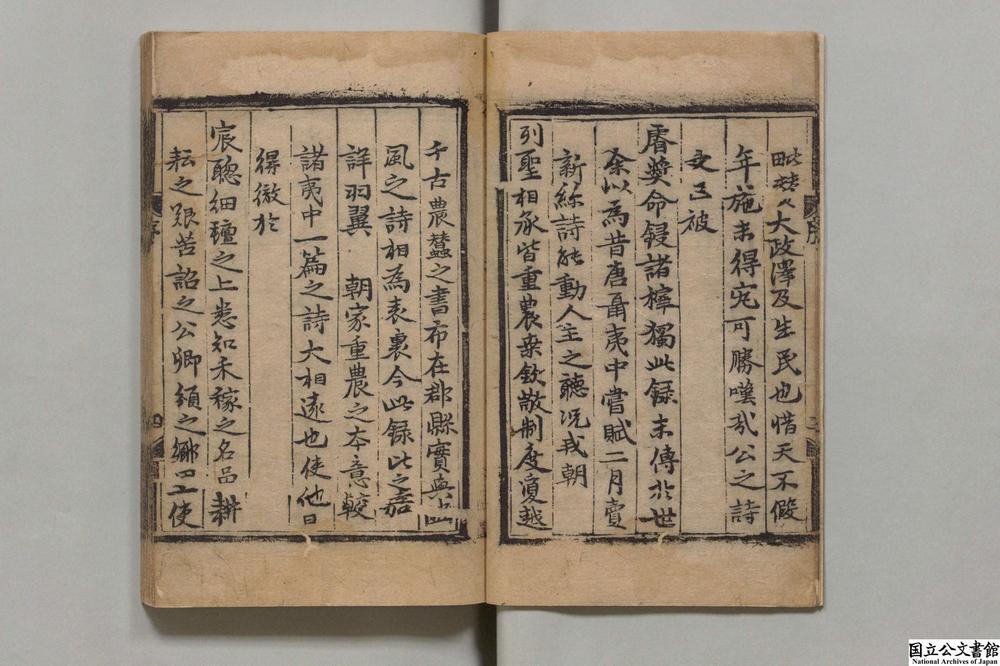 大政澤及生民也惜天不假
年施未得究可勝嘆哉公之詩
文已被
睿奬命鋟諸梓獨此錄未傳於世
余以爲昔唐聶夷中嘗賦二月賣
新絲詩能動人主之聽況我朝
列聖相承皆重農桑欽敬制度夐越
序
千古農蠶之書布在郡縣實與豳
風之詩相爲表裏今此錄此之嘉
詳羽翼 朝家重農之本意較
諸夷中一篇之詩大相遠也使他日
得徹於
宸聰細氊之上悉知禾稼之名品耕
耘之艱苦詔之公卿頒之鄕
使
序
四
国立公文書館
National Archives of Japan